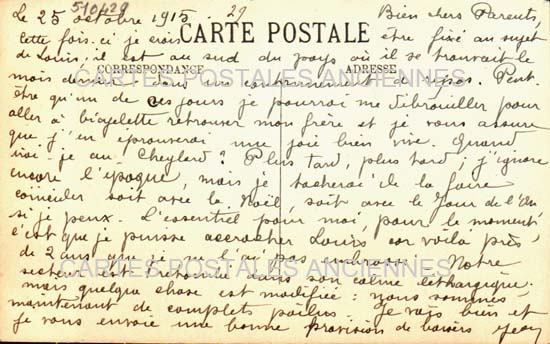 510429
29
Le 25 octobre 1915 Bien chers Parents,
CARTE POSTALE
cette fois-ci je crois être fixé au sujet
de Louis, il est au sud du pays où il se trouvait le
CORRESPONDANCE ADRESSE
mois dernier, dans un cantonnement de repos. Peut-
être qu'un de ces jours je pourrai me débrouiller pour
aller à bicyclette retrouver mon frère et je vous assure
que j'en éprouverai une joie bien vive. Quand
irai-je au Cheylard? Plus tard, plus tard; j'ignore
encore l'époque, mais je tacherai de la faire
coincider soit avec la Noël, soit avec le Jour de l'An
si je peux. L'essentiel pour moi, pour le moment
c'est que je puisse accrocher Louis car voilà près
de 2 ans que je ne l'ai pas embrassé. Notre
secteur est retombé dans son calme léthargique.
mais quelque chose est modifiée: nous sommes
maintenant de complets poilus. Je vais bien et
je vous envoie une bonne provision de baisers
CARTES POSTALES ANCIENNES
CARTES POSTALES ANCIENNES